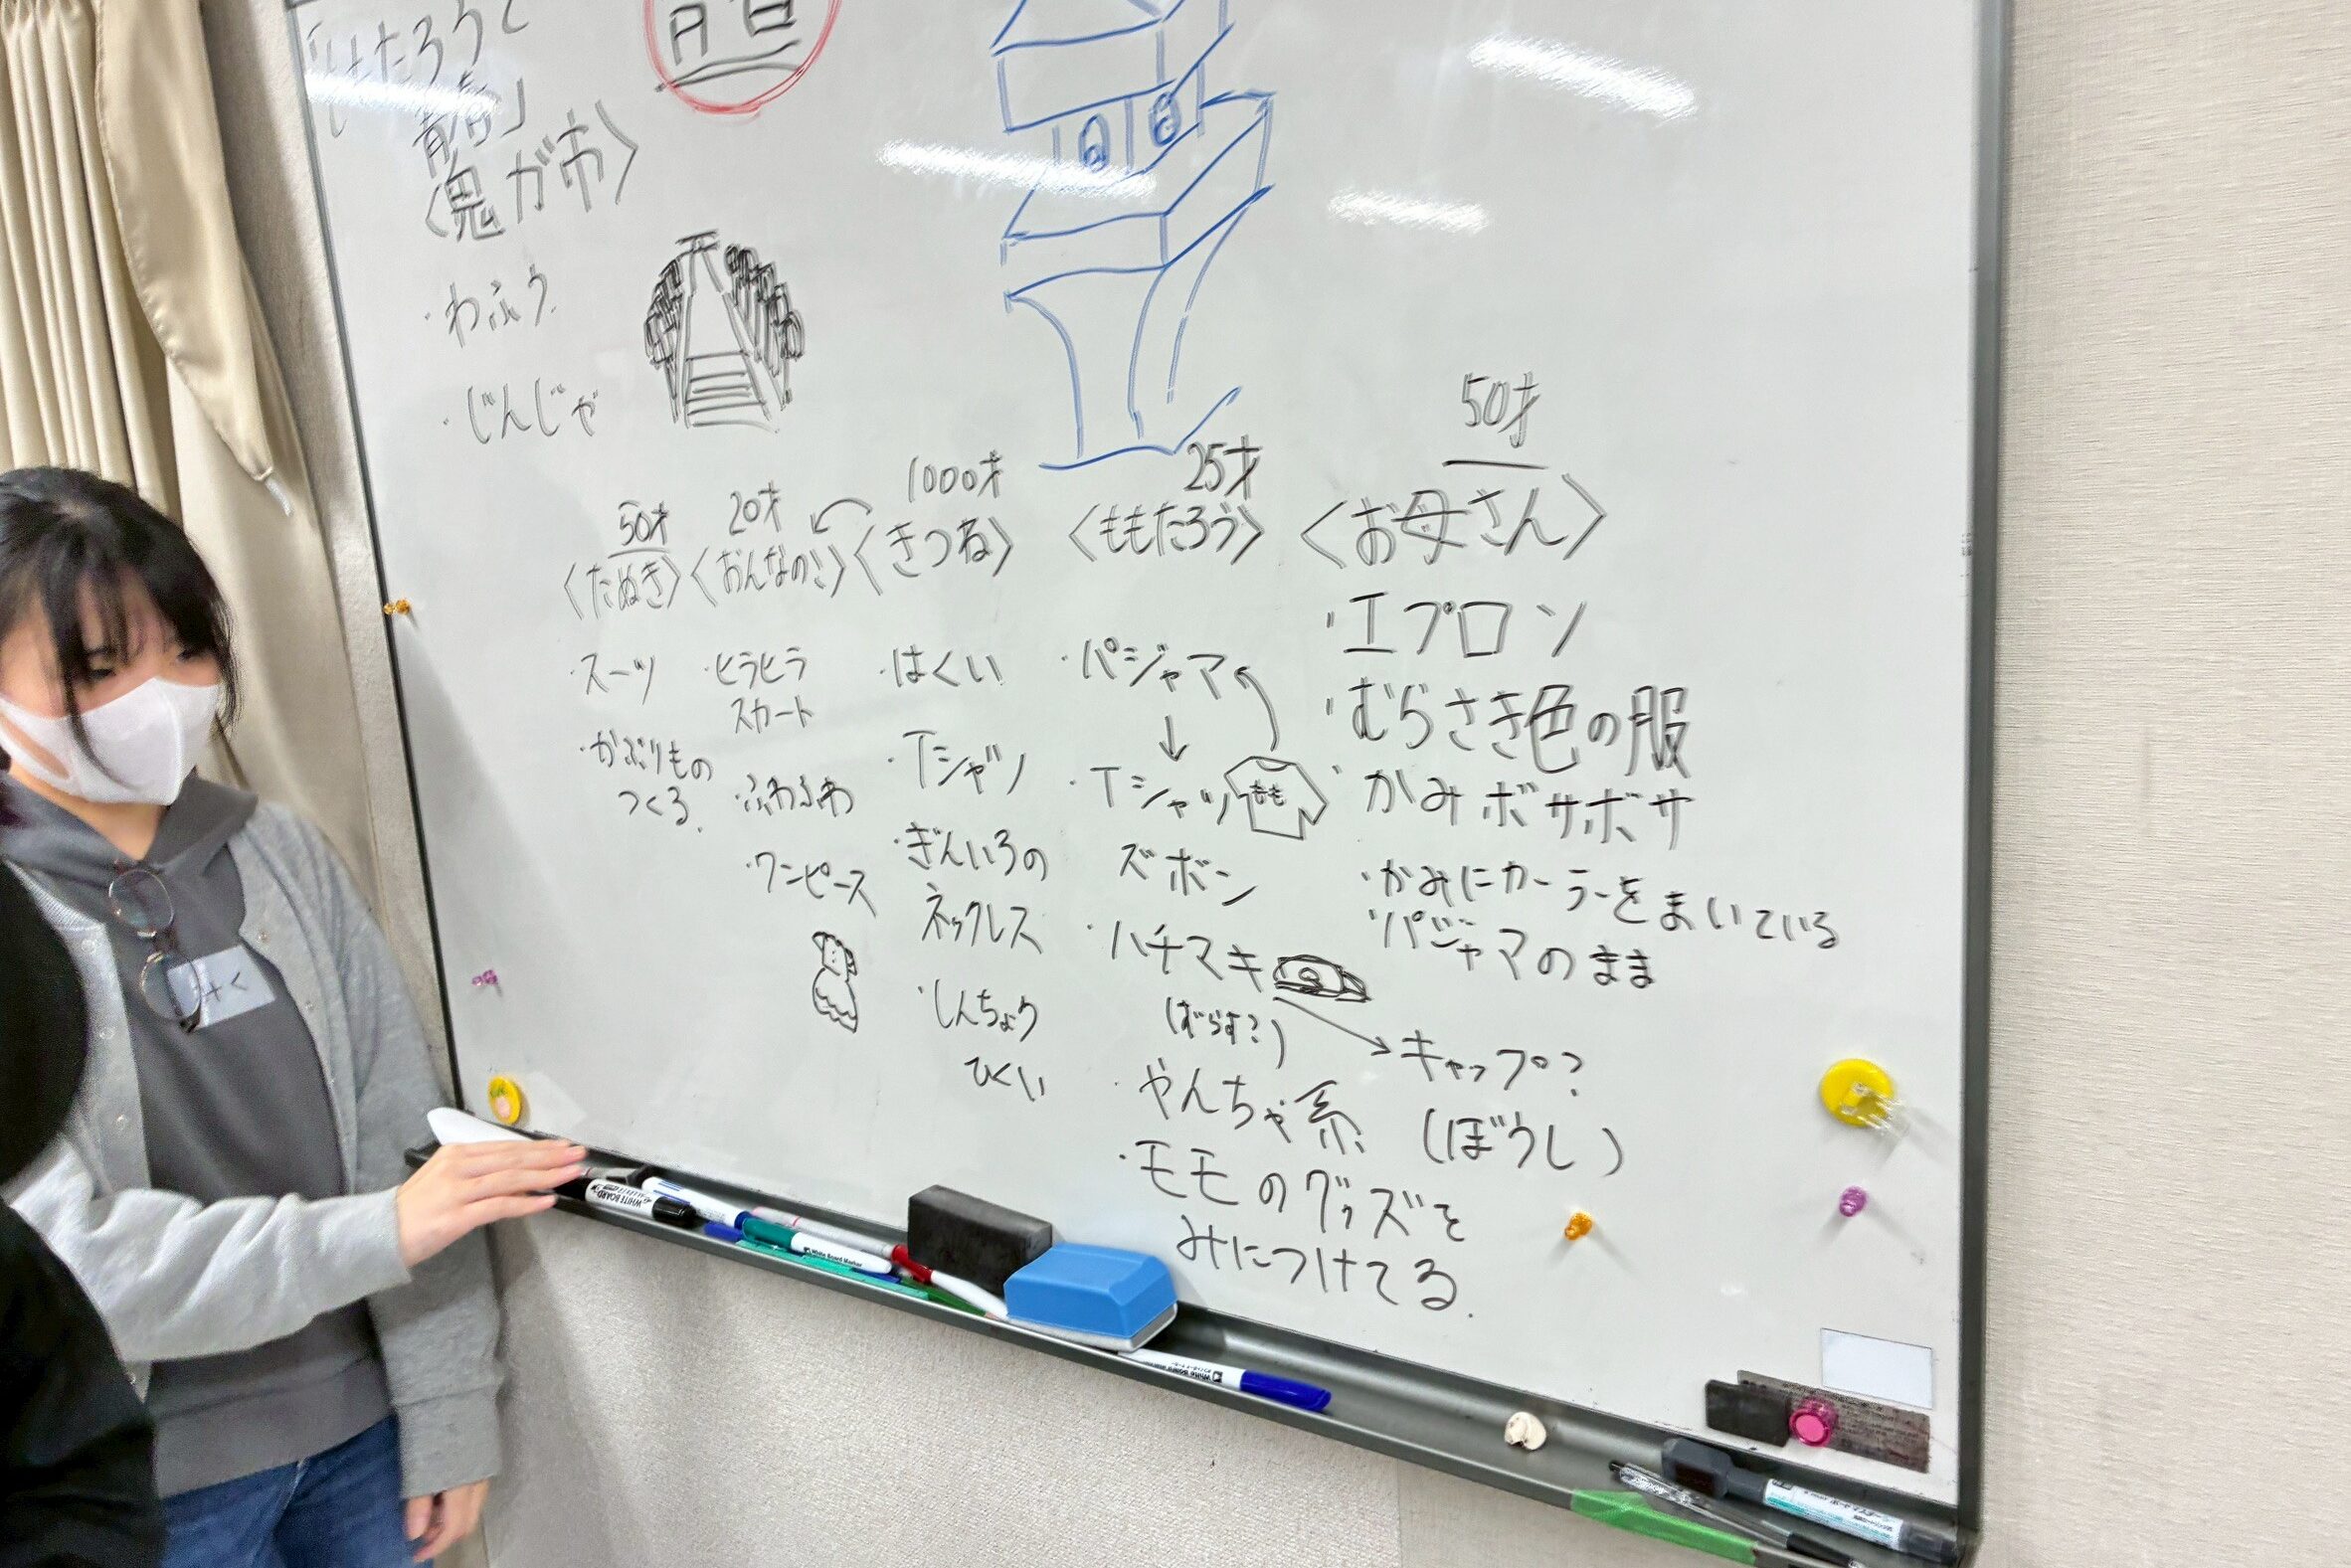 たろうと
青春」
〈鬼ガ市〉
・わふう
・じんじゃ
50才
〈たぬき〉
・スーツ
・かぶりもの
つくる.
20才
〈おんなのこ〉
・ヒラヒラ
スカート
・ふわふわ
・ワンピース
1000才
〈きつね〉
・はくい
・Tシャツ
・ぎんいろの
ネックレス
・しんちょう
ひくい
25才
〈ももたろう〉
・パジャマ
↓
・Tシャツ
もも
ズボン
・ハチマキ
(ずらす?)
→キャップ?
(ぼうし)
・やんちゃ系
・モモのグッズを
みにつけてる.
50才
〈お母さん〉
・エプロン
・むらさき色の服
・かみボサボサ
・かみにカーラーをまいている
・パジャマのまま
WHITE BOARD
White Board Marker